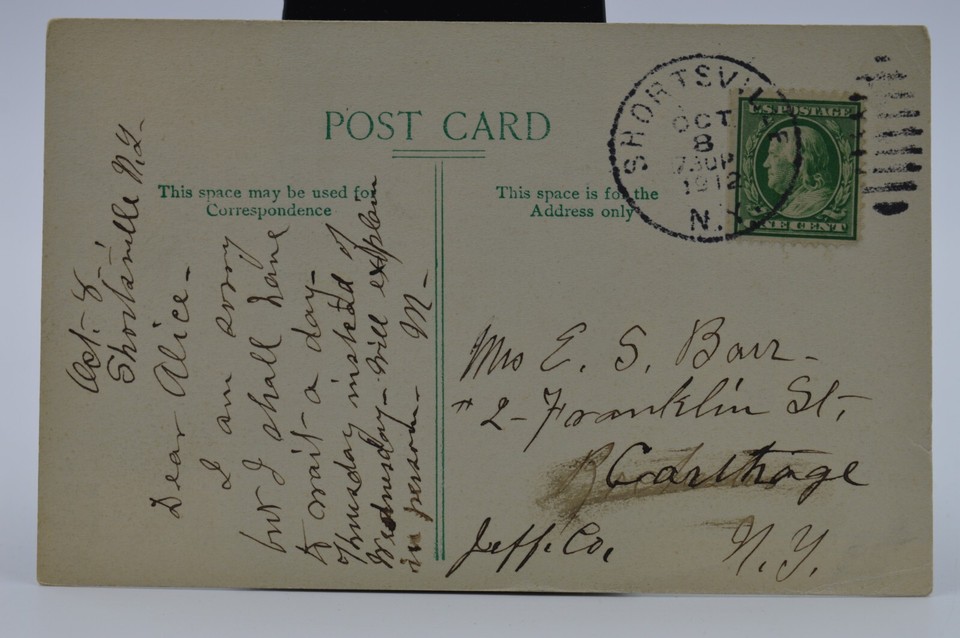 POST CARD
This space may be used for
Correspondence
This space is for the
Address only
SHORTSVILLE
OCT
8
1912
N.Y.
U.S. POSTAGE
ONE CENT
Oct. 8
Shortsville N.Y.
Dear Alice -
I am sorry
but I shall have
to wait a day -
Thursday instead of
Wednesday - Will explain
in person - M -
Mrs E. S. Barr -
# 2 - Franklin St,
Carthage
Jeff. Co, N.Y.